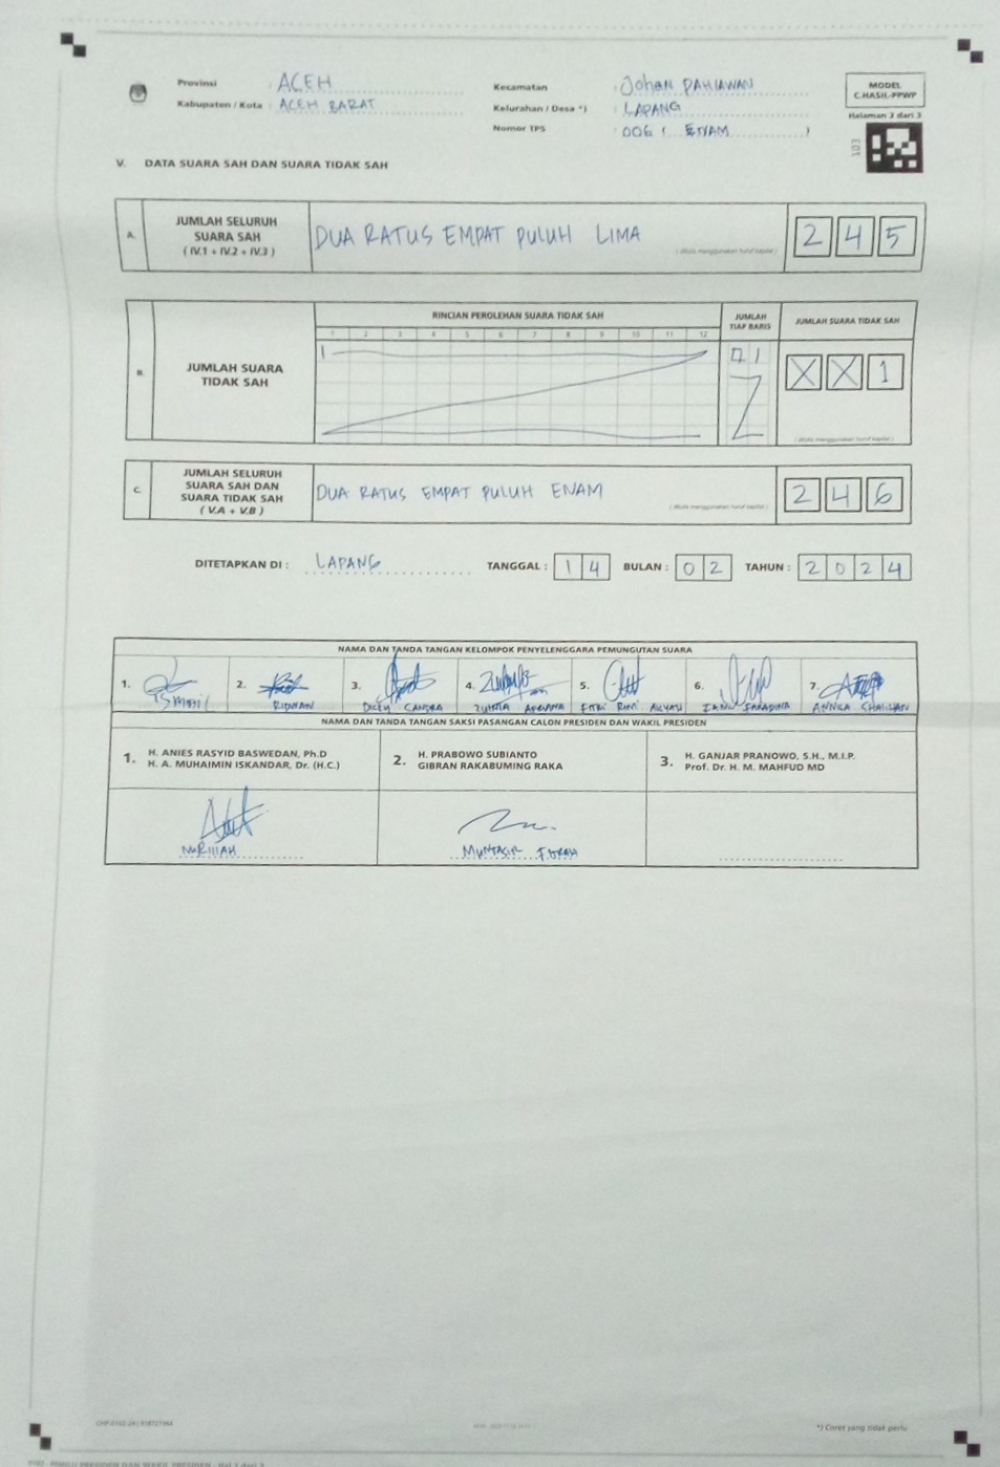 Provinsi : ACEH
Kabupaten / Kota : ACEH BARAT
Kecamatan : JOHAN PAHLAWAN
Kelurahan / Desa *) : LAPANG
Nomor TPS : 006 ( ENAM )
MODEL
C.HASIL-PPWP
Halaman 2 dari 3
103
V. DATA SUARA SAH DAN SUARA TIDAK SAH
A. JUMLAH SELURUH SUARA SAH ( IV.1 + IV.2 + IV.3 )
DUA RATUS EMPAT PULUH LIMA
( ditulis menggunakan huruf kapital )
2 4 5
B. JUMLAH SUARA TIDAK SAH
RINCIAN PEROLEHAN SUARA TIDAK SAH
1 2 3 4 5 6 7 8 9 10 11 12
JUMLAH TIAP BARIS
JUMLAH SUARA TIDAK SAH
X X 1
( ditulis menggunakan huruf kapital )
C. JUMLAH SELURUH SUARA SAH DAN SUARA TIDAK SAH ( V.A + V.B )
DUA RATUS EMPAT PULUH ENAM
( ditulis menggunakan huruf kapital )
2 4 6
DITETAPKAN DI : LAPANG TANGGAL : 1 4 BULAN : 0 2 TAHUN : 2 0 2 4
NAMA DAN TANDA TANGAN KELOMPOK PENYELENGGARA PEMUNGUTAN SUARA
1. ISMAIL 2. RIDWAN 3. CANDRA 4. 5. FITRI 6. 7. ANNISA
NAMA DAN TANDA TANGAN SAKSI PASANGAN CALON PRESIDEN DAN WAKIL PRESIDEN
1. H. ANIES RASYID BASWEDAN, Ph.D
H. A. MUHAIMIN ISKANDAR, Dr. (H.C.)
2. H. PRABOWO SUBIANTO
GIBRAN RAKABUMING RAKA
3. H. GANJAR PRANOWO, S.H., M.I.P.
Prof. Dr. H. M. MAHFUD MD
MUNTASIR
*) Coret yang tidak perlu